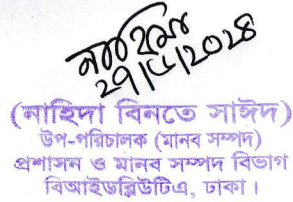 ২৭/৫/২০২৪
(নাহিদা বিনতে সাঈদ)
উপ-পরিচালক (মানব সম্পদ)
প্রশাসন ও মানব সম্পদ বিভাগ
বিআইডব্লিউটিএ, ঢাকা।